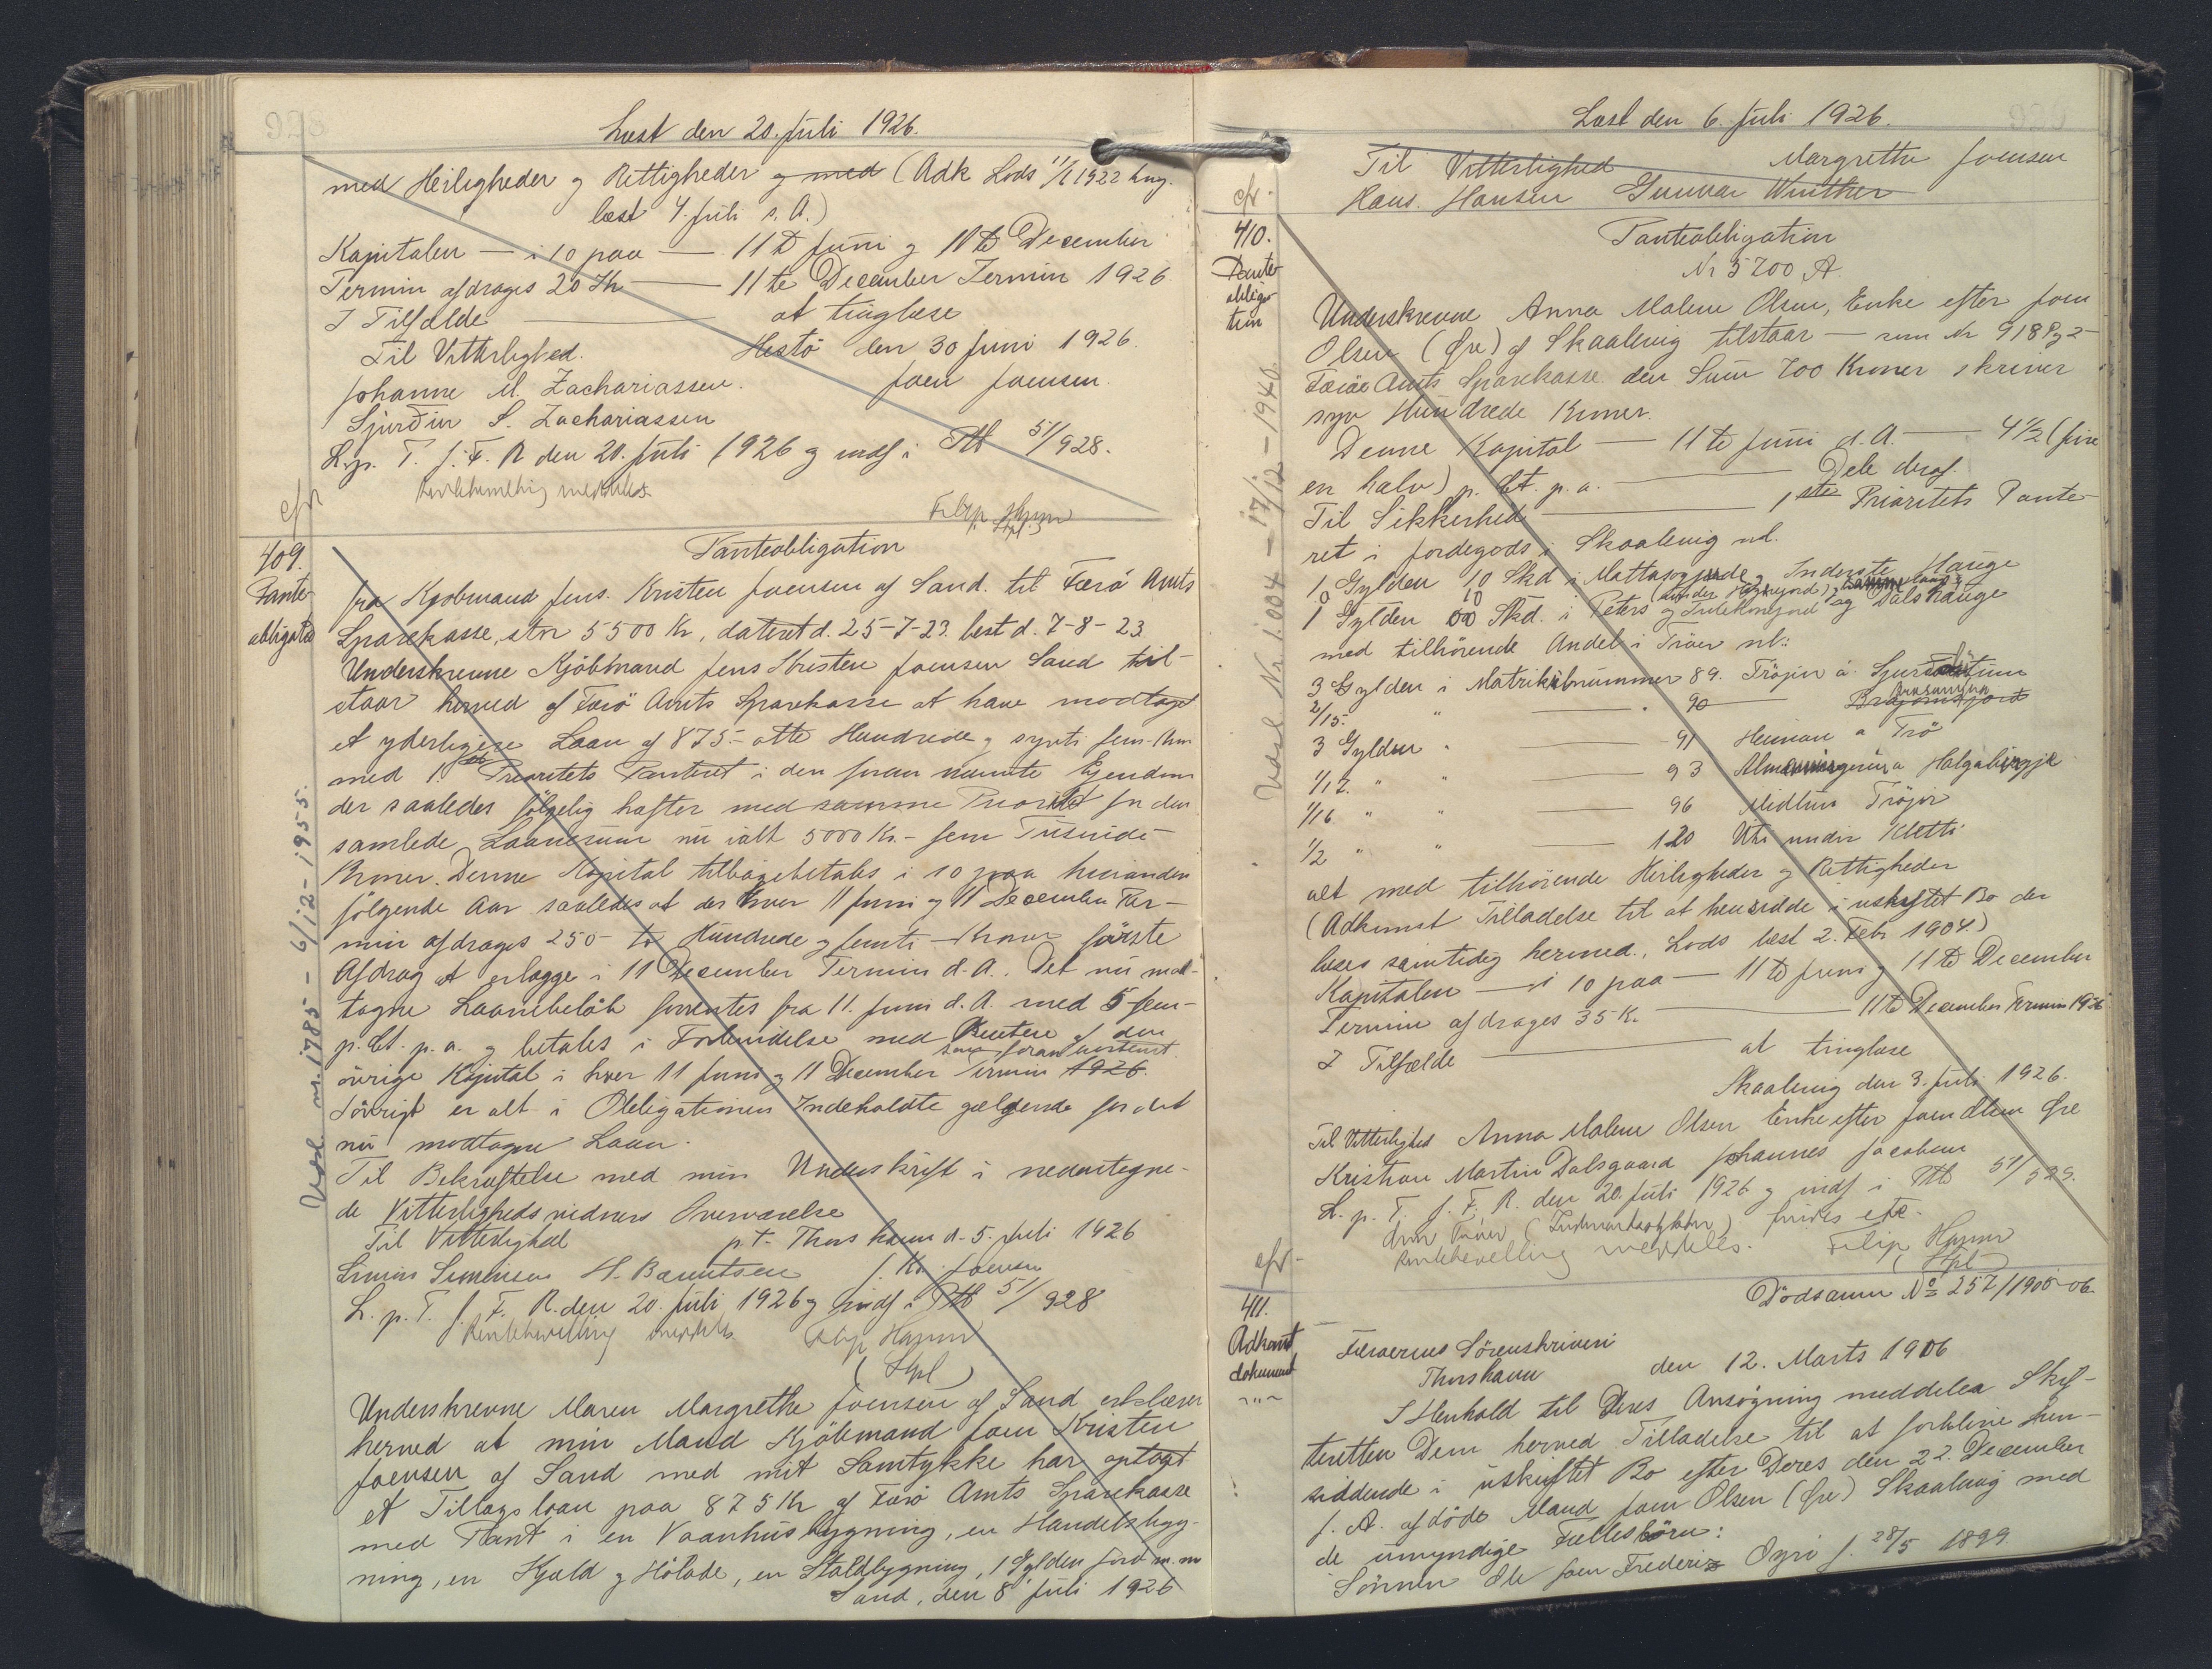 Læst den 20. Juli 1926.
med Heiligheder og Rettigheder og med (Adk Lods 11/1 1922 tng.
læst 4. Juli s. A.)
Kapitalen — i 10 paa — 11te Juni og 11te December
Termin afdrages 20 Kr — 11te December Termin 1926
I Tilfælde — at tinglæse
Til Vitterlighed. Hestö den 30 Juni 1926.
Johanne M. Zachariassen. Joen Joensen.
Sjúrður S. Zachariassen
L. p. T. f. F. R den 20. Juli 1926 og indf i Ptb 51/928.
Rentebevilling meddeles.
cfr
409.
Pante-
obligation
Panteobligation
fra Kjøbmand Jens Kristen Joensen af Sand til Færö Amts
Sparekasse, stor 5500 Kr, dateret d. 25-7-23. læst d. 7-8-23
Underskrevne Kjöbmand Jens Kristen Joensen Sand til-
staar herved af Færö Amts Sparekasse at have modtaget
et yderligere Laan af 875.- otte Hundrede og syvti fem Krn
med 1. Prioritets Panteret i den foran nævnte Ejendom
der saaledes fölgelig hafter med samme Prioritet for den
samlede Laanesum nu ialt 5000 Kr.- fem Tusinde-
Kroner. Denne Kapital tilbagebetales i 10 paa hverandre
fölgende Aar saaledes at der hver 11 Juni og 11 December Ter-
min afdrages 250 - to Hundrede og femti - Kroner förste
Afdrag at erlægge i 11 December Termin d. A. Det nu mod-
tagne Laanebelöb forrentes fra 11. Juni d. A. med 5 fem-
p. Ct. p. a. og betales i Forbindelse med Renten af den
övrige Kapital i hver 11 Juni og 11 December Termin 1926. som foran bestemt.
Iövrigt er alt i Obligationen Indeholdte gældende for det
nu modtagne Laan.
Til Bekræftelse med min Underskrift i nedentegne-
de Vitterlighedsvidners Overværelse
Til Vitterlighed p. t. Thorshavn d. 5. Juli 1926
H. Berentsen J. Kr. Joensen
L. p. T. f. F. R. den 20. Juli 1926 og indf i Ptb 51/928
Rentebevilling meddeles.
Underskrevne Maren Margrethe Joensen af Sand erklærer
herved at min Mand Kjöbmand Joen Kristen
Joensen af Sand med mit Samtykke har optaget
et Tillægslaan paa 875 Kr af Færö Amts Sparekasse
med Pant i en Vaanhusbygning, en Handelsbyg-
ning, en Kjæld og Hölade, en Staldbygning, 1 Gylden Jord m. m
Sand, den 8 Juli 1926
Vasl. nr. 1785 - 6/12 - 1955.
Læst den 6. Juli 1926.
Til Vitterlighed Margrethe Joensen
Hans Hansen Gunnar Winther
cfr.
410.
Pante-
obliga-
tion
Panteobligation
Nr 5700 A.
Underskrevne Anna Malene Olsen, Enke efter Joen
Olsen (Öre) af Skaalevig tilstaar — som Nr 918
Færöe Amts Sparekasse den Sum 700 Kroner skriver
syv Hundrede Kroner.
Denne Kapital — 11te Juni d. A. — 4½ (fire
en halv) p. Ct. p. a. — Dele deraf.
Til Sikkerhed — 1ste Prioritets Pante-
ret i Jordegods i Skaalevig nl.
10 Gylden 10 Skd i Mattasogjorde, Inderste Hauge
1 Gylden 10 Skd. i Peters og og Dals hauge
med tilhörende Andel i Tröer nl:
3 Gylden i Matrikulnummer 89. Tröjir á
2/15. " — 90
3 Gylden " — 91 Heiman a Trö
1/12. " " — 93 a Halgabirgje
1/16 " " — 96 Midtun Tröjir
1/2 " " — 120 Uti undir Kletti
alt med tilhörende Herligheder og Rettigheder
(Adkomst Tilladelse til at hensidde i uskiftet Bo der
læses samtidig hermed., Lods læst 2. Febr 1904.)
Kapitalen — i 10 paa — 11te Juni og 11te December
Termin afdrages 35 Kr. — 11te December Termin 1926
I Tilfælde — at tinglæse
Skaalevig den 3. Juli 1926.
Til Vitterlighed Anna Malene Olsen Enke efter Joen Olsen Öre
Kristian Martin Dalsgaard Johannes Jacobsen
L. p. T. f. F. R. den 20. Juli 1926 og indf i Ptb 51/929.
Rentebevilling meddeles.
Vasl. Nr. 1004 - 17/12 - 1940.
cfr.
411.
Adkomst
dokument
Dödsanm No 257/1905-06.
Færøernes Sörenskriveri
Thorshavn den 12. Marts 1906
I Henhold til Deres Ansøgning meddeler Skif-
teretten Dem herved Tilladelse til at forblive hen-
siddende i uskiftet Bo efter Deres den 22. December
f. A. afdöde Mand Joen Olsen (Öre) Skaalevig med
de umyndige Fællesbörn:
Sönnen Ole Joen Frederiz Oyri f. 28/5 1899